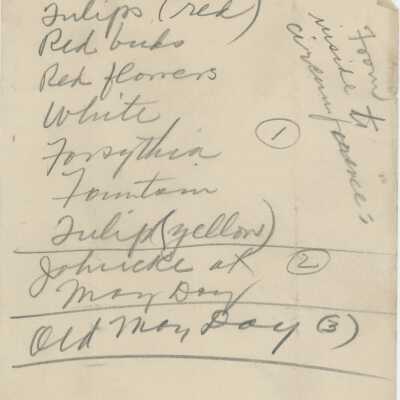 Tulips (red)
Red buds
Red flowers
White
Forsythia
Fountain
Tulips (yellow)
①
at
May Day
②
Old May Day (3)
from
inside to
circumference's